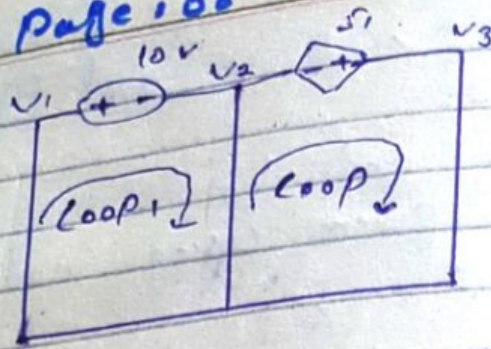 Page
10 V
5i
V1
+ -
V2
- +
V3
Loop1
Loop